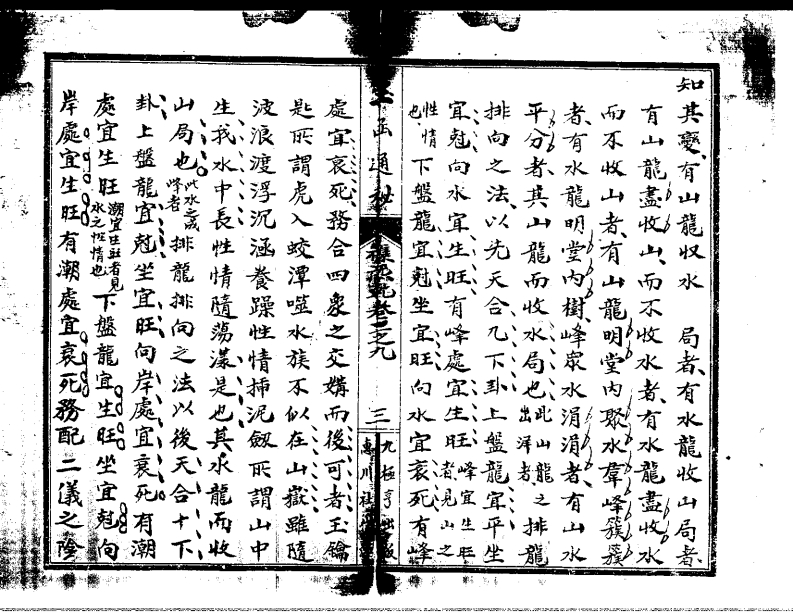 知其變、有山龍收水　局者、有水龍收山局者、
有山龍盡收山、而不收水者、有水龍盡收水
而不收山者、有山龍明堂內聚水羣峰簇簇
者、有水龍明堂內樹峰眾水涓涓者、有山水
平分者、其山龍而收水局也此山龍之排龍出洋者
排向之法、以先天合九下卦上盤龍宜平坐
宜尅向水宜生旺、有峰處宜生旺峰宜生旺者見山之
性情也下盤龍宜尅坐宜旺向水宜衰死有峰
處宜衰死、務合四象之交媾而後可者玉鑰
匙所謂虎入蛟潭噬水族不似在山嶽雖隨
波浪渡浮沉涵養躁性情揷泥劔所謂山中
生我水中長性情隨蕩漾是也其水龍而收
山局也此水之成峰者排龍排向之法以後天合十下
卦上盤龍宜尅坐宜旺向岸處宜衰死有潮
處宜生旺潮宜生旺者見水之性情也下盤龍宜生旺坐宜尅向
岸處宜生旺有潮處宜衰死務配二儀之陰
函通秘
卷之九
三
九極亨出版
惠川社